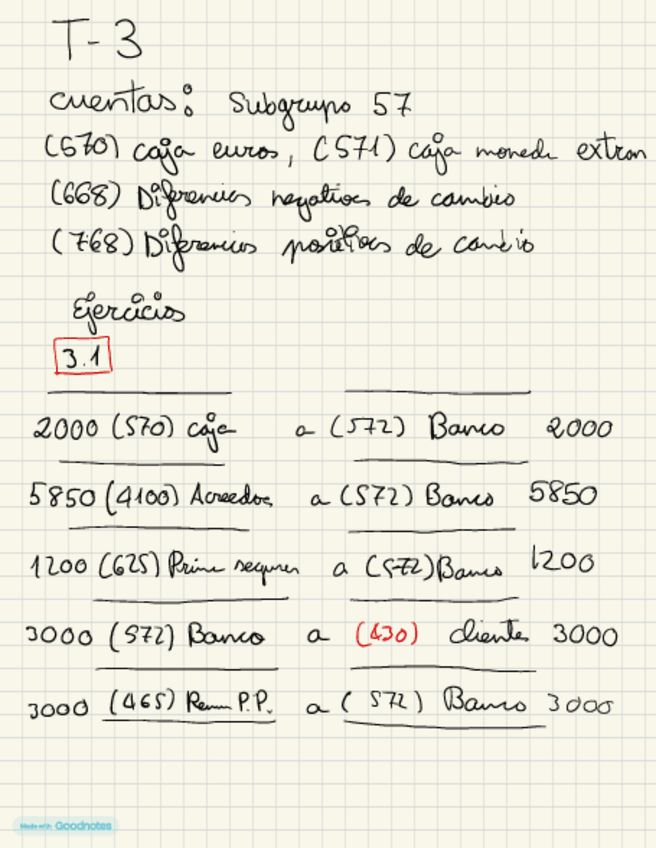 T-3
cuentas: Subgrupo 57
(570) caja euros, (571) caja moneda extran
(668) Diferencias negativas de cambio
(768) Diferencias positivas de cambio
Ejercicios
3.1
2000 (570) caja a (572) Banco 2000
5850 (4100) Acreedor a (572) Banco 5850
1200 (625) Prima seguros a (572) Banco 1200
3000 (572) Banco a (430) clientes 3000
3000 (465) Remun P.P. a (572) Banco 3000
Made with Goodnotes